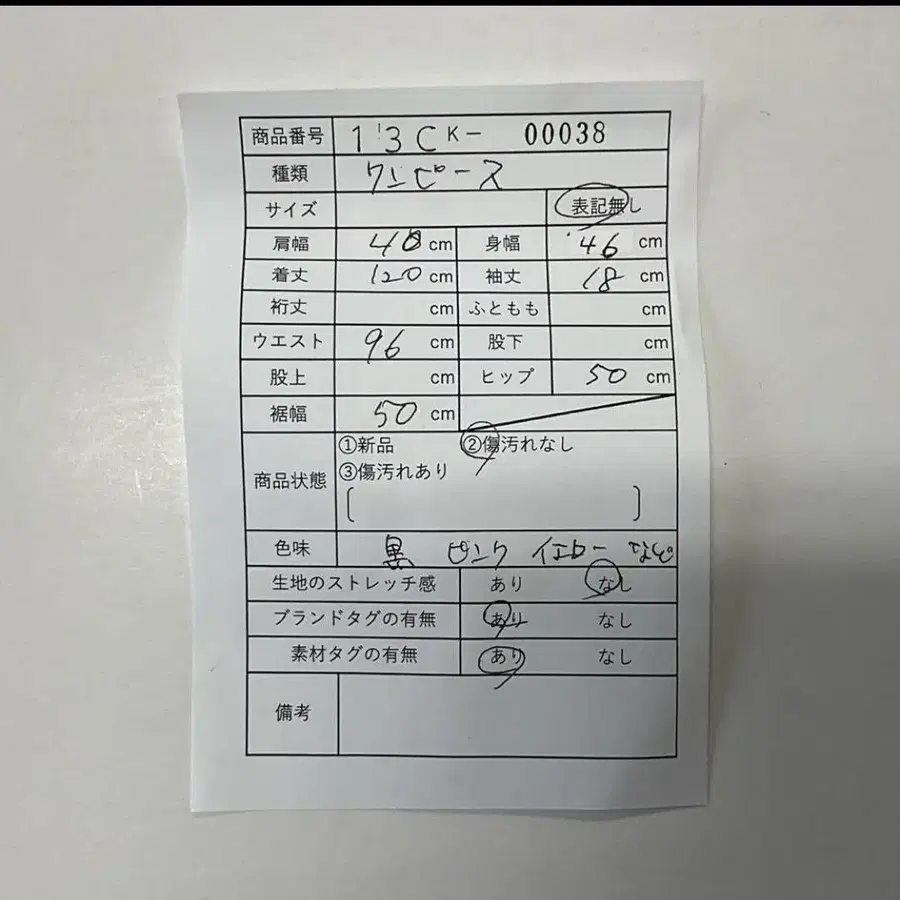 商品番号 13C K- 00038
種類 ワンピース
サイズ 表記無し
肩幅 40 cm 身幅 46 cm
着丈 120 cm 袖丈 18 cm
裄丈 cm ふともも cm
ウエスト 96 cm 股下 cm
股上 cm ヒップ 50 cm
裾幅 50 cm
商品状態 ①新品 ②傷汚れなし
③傷汚れあり
[ ]
色味 黒 ピンク イエロー など
生地のストレッチ感 あり なし
ブランドタグの有無 あり なし
素材タグの有無 あり なし
備考